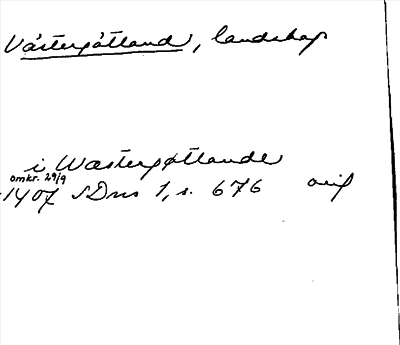 Västergötland, landskap
i Wæstergøtlande
omkr. 29/9
1407 SDns 1, s. 676 avs